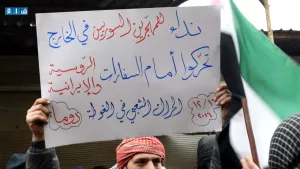 نداء للمهجرين السوريين في الخارج
تحركوا أمام السفارات الروسية
والإيرانية
الحراك الشعبي في الغوطة
دوما